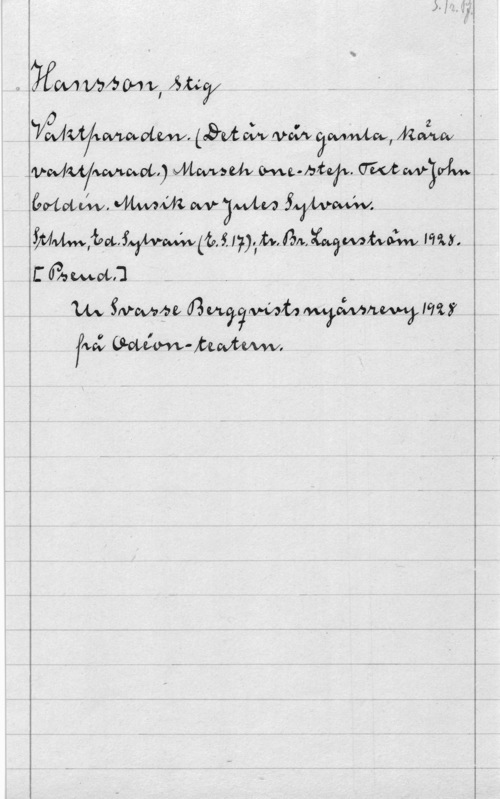 Hansson, Stig
Vaktparaden. (Det är vår gamla, kära
vaktparad.) Marsch one-step. Text av John
Coldén. Musik av Jules Sylvain.
Sthlm, Ed. Sylvain (E.S. 17); tr. Br. Lagerström 1928.
[Pseud.]
Ur Svasse Bergqvists nyårsrevy 1928
frå Odéon-teatern.